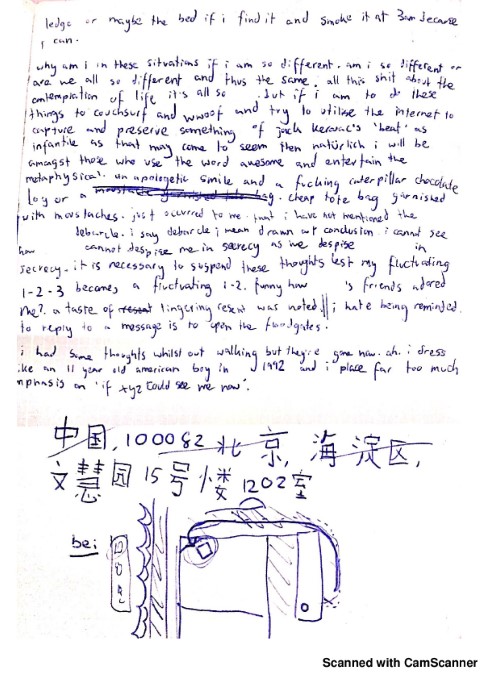 ledge or maybe the bed if i find it and smoke it at 3am because
i can.
why am i in these situations if i am so different. am i so different or
are we all so different and thus the same. all this shit about the
contemplation of life it's all so . but if i am to do these
things to couchsurf and wwoof and try to utilise the internet to
capture and preserve something of jack kerouac's 'beat' as
infantile as that may come to seem then natürlich i will be
amongst those who use the word awesome and entertain the
metaphysical. un apologetic smile and a fucking caterpillar chocolate
log or a cheap tote bag garnished
with moustaches. just occurred to me that i have not mentioned the
debacle. i say debacle i mean drawn out conclusion. i cannot see
how cannot despise me in secrecy as we despise in
secrecy. it is necessary to suspend these thoughts lest my fluctuating
1-2-3 becomes a fluctuating 1-2. funny how 's friends adored
me? a taste of lingering resent was noted. || i hate being reminded.
to reply to a message is to open the floodgates.
i had some thoughts whilst out walking but they're gone now. ah. i dress
like an 11 year old american boy in 1992 and i place far too much
emphasis on 'if xyz could see me now'.
中国, 100082 北京, 海淀区,
文慧园 15号楼 1202室
bei